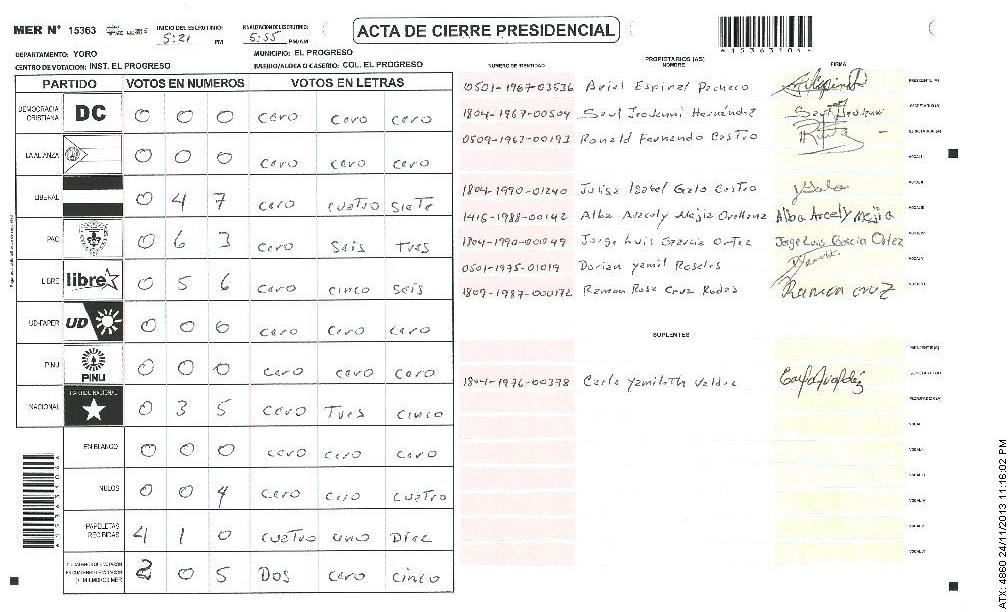 MER Nº 15363 INICIO DEL ESCRUTINIO: 5:21 PM FINALIZACION ESCRUTINIO: 5:55 PM/AM
ACTA DE CIERRE PRESIDENCIAL
DEPARTAMENTO: YORO MUNICIPIO: EL PROGRESO
CENTRO DE VOTACION: INST. EL PROGRESO BARRIO/ALDEA O CASERIO: COL. EL PROGRESO
PARTIDO VOTOS EN NUMEROS VOTOS EN LETRAS
DEMOCRACIA CRISTIANA DC 0 0 0 cero cero cero
LA ALIANZA 0 0 0 cero cero cero
LIBERAL 0 4 7 cero cuatro siete
PAC 0 6 3 cero Seis Tres
LIBRE libre 0 5 6 cero cinco Seis
UD-FAPER UD 0 0 0 cero cero cero
PINU PINU 0 0 0 cero cero cero
NACIONAL PARTIDO NACIONAL 0 3 5 cero Tres cinco
EN BLANCO 0 0 0 cero cero cero
NULOS 0 0 4 cero cero cuatro
PAPELETAS RECIBIDAS 4 1 0 cuatro uno Diez
2 0 5 Dos cero cinco
PROPIETARIOS (AS)
NUMERO DE IDENTIDAD NOMBRE FIRMA
0501-1967-03536 Ariel Espinal Pacheco PRESIDENTE (A)
1804-1967-00504 Saul Hernández SECRETARIO (A)
0509-1963-00193 Ronald Fernando Castro ESCRUTADOR (A)
VOCAL I
1804-1990-01240 Julisa Isabel Galo Castro VOCAL II
1416-1988-00142 Alba Aracely Mejia Orellana Alba Arcely Mejia
1804-1990-00949 Jorge Luis Garcia Ortez Jorge Luis Garcia Ortez VOCAL IV
0501-1975-01019 Dorian Yamil Rosales VOCAL V
1809-1987-000172 Ramon Rosa Cruz Rodas Ramon cruz VOCAL VI
SUPLENTES
PRESIDENTE (A)
1804-1976-00378 Carla Yamileth Valdez SECRETARIO (A)
ESCRUTADOR (A)
VOCAL I
VOCAL II
VOCAL III
VOCAL IV
VOCAL V
VOCAL VI
ATX: 4860 24/11/2013 11:16:02 PM